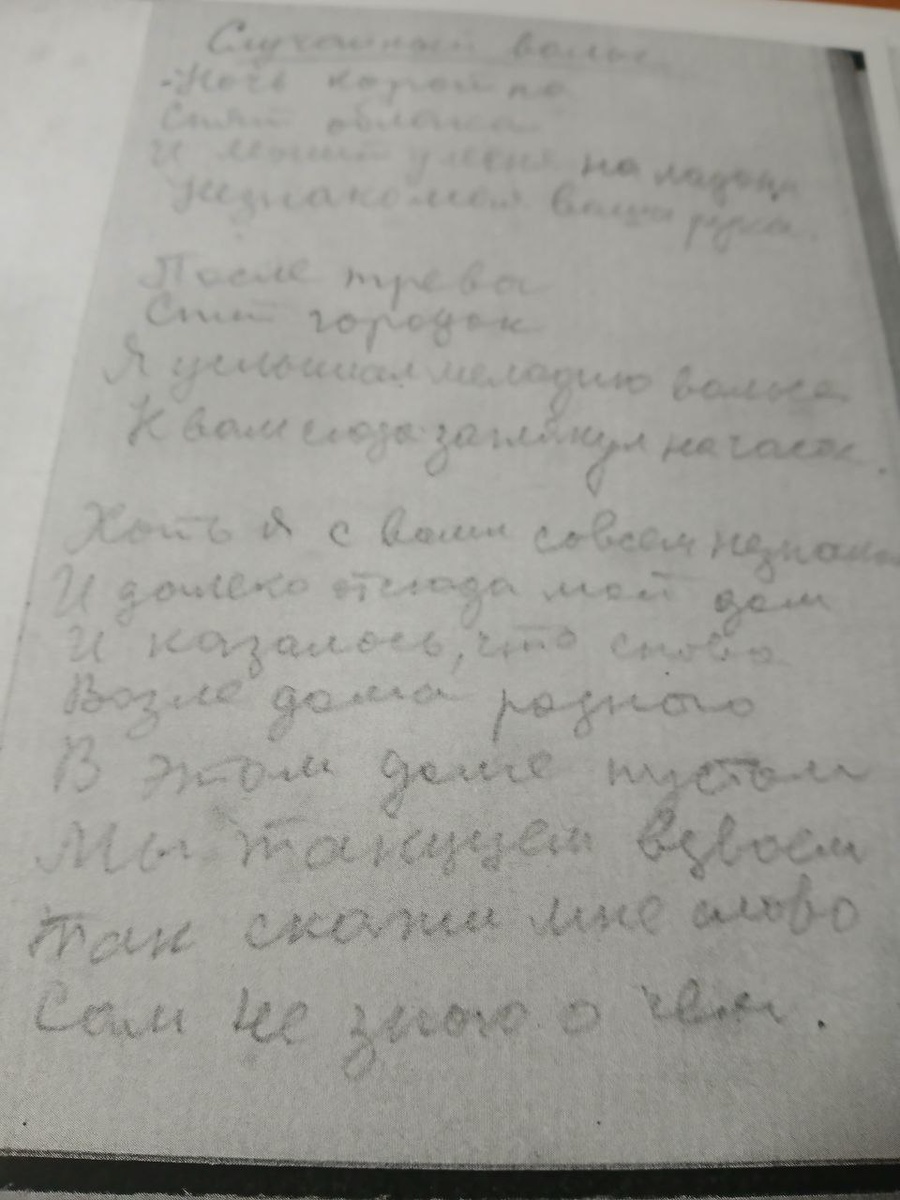 Случайный вальс
Ночь коротка
Спят облака
И лежит у меня на ладони
Незнакомая ваша рука.
После тревог
Спит городок
Я услышал мелодию вальса
К вам сюда заглянул на часок.
Хоть я с вами совсем незнаком
И далеко отсюда мой дом
И казалось, что снова
Возле дома родного
В этом доме пустом
Мы танцуем вдвоем
Так скажи мне слово
Сам не знаю о чем.